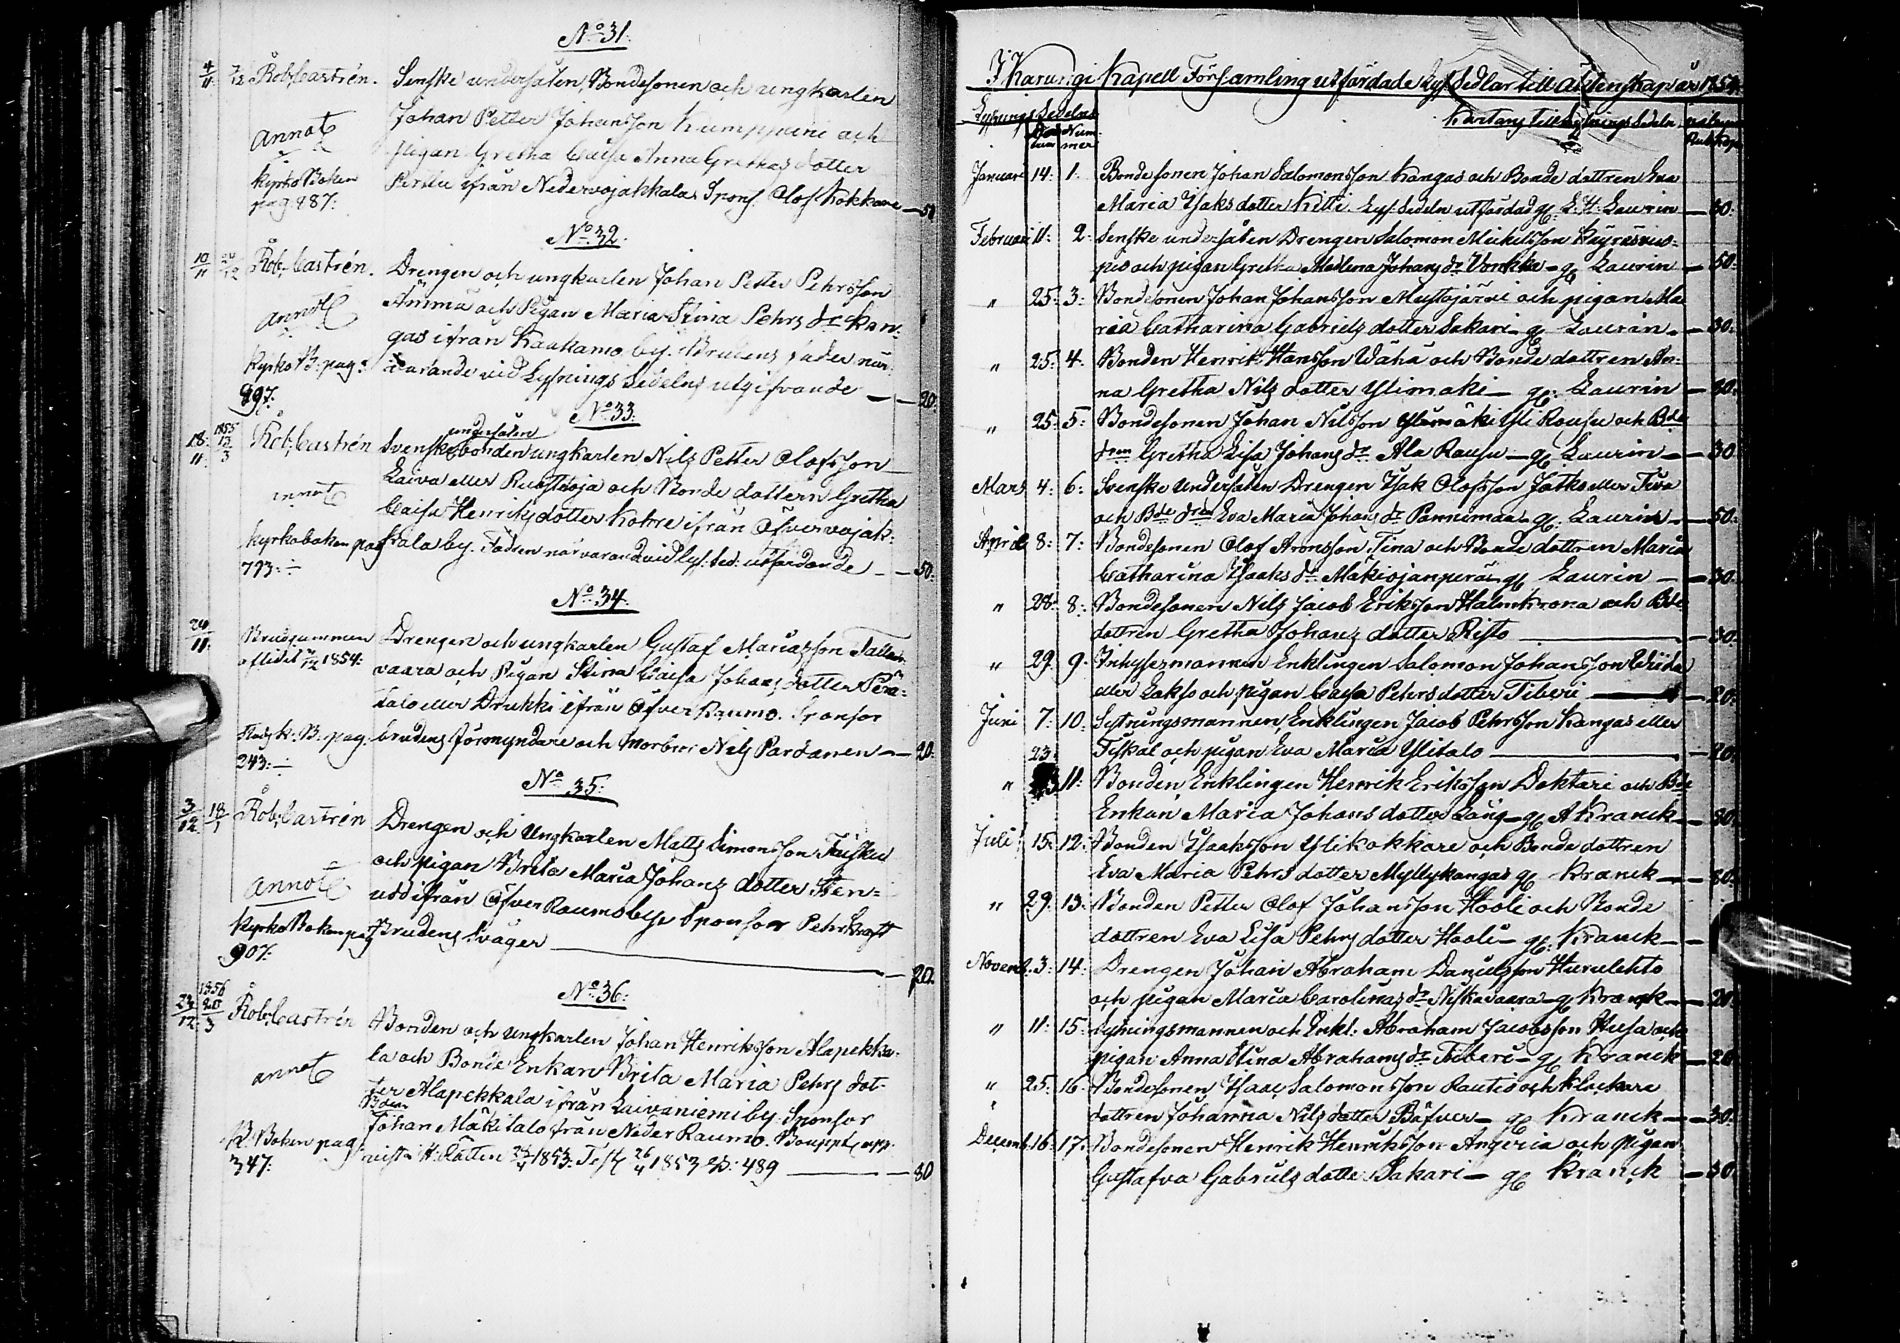 No 31.
4/11 7/12 Rob. Castrén. Svenske undersåten, Bondesonen och ungkarlen
Johan Petter Johansson Kumppuine och
annot
pigan Gretha Caisa Anna Grethas dotter
Kyrko Boken
ifrån Nedervojakkala Spons. Olof Kokkare — 50
pag 487:
No 32.
10/11 Rob. Castrén. Drengen och ungkarlen Johan Petter Pehrsson
Ämmä och Pigan Maria Stina Pehrs dr Kan-
annot
gas ifrån Kaakamo by. Brudens fader när-
Kyrko B: pag:
varande vid Lysnings Sedelns utgifvande — 20.
897.
No 33.
undersåten
18/11 1855 13/3 Rob. Castrén Svenske bonden ungkarlen Nils Petter Olofsson
Laiva eller Ruostaoja och Bonde dottern Gretha
annot
Caisa Henriks dotter Kohre ifrån Öfvervojak-
Kyrkoboken pag
kala by. Fadren närvarand vid lys: sed: utfärdande — 50.
793:
No 34.
24/11 Brudgummen Drengen och ungkarlen Gustaf Mariasson
afliden 1854:
vaara och Pigan Stina Caisa Johans dotter Perä-
talo eller Drukki ifrån Öfver Raumo. Sponsor
K: B: pag. brudens förmyndare och morbror Nils Pardanen — 20.
243:
No 35.
3/12 18/1 Rob. Castrén Drengen och Ungkarlen Matts Simonsson
och pigan Brita Maria Johans dotter Sten-
annot
udd ifrån Öfver Raumo by Sponsor Pehr
Kyrko Boken pag Brudens Svåger — 20.
907.
No 36.
1856 20/3 Rob. Castrén Bonden och ungkarlen Johan Henriksson Alapekka-
la och Bonde Enkan Brita Maria Pehrs dot-
annot
ter Alapekkala ifrån Laivaniemi by. Sponsor
Bden
Johan Mäkitalo från Neder Raumo. Bouppt. upp-
K: Boken pag
1853: Test 26/4 1853 : 489 — 30
347:
I Karungi Kapell Församling utfärdade Lys Sedlar till Äktenskap år 1854.
Lysnings Sedelns
Datum Nummer
Januari 14. 1. Bondesonen Johan Salomonsson Kangas och Bonde dottren Eva
Maria Isaks dotter Kitti. Lys. Sedeln utfärdad af L. H. Laurin — 30.
Februari 11. 2. Svenske undersåten Drengen Salomon Mickelsson
och pigan Gretha Madlena Johans dr Vonkka — af Laurin — 50.
" 25. 3. Bondesonen Johan Johansson Mustajärvi och pigan Ma
ria Catharina Gabriels dotter Sakari — af Laurin — 30.
" 25. 4. Bonden Henrik Hansson Wähä och Bonde dottren An-
na Gretha Nils dotter Ylimäki — af Laurin — 30.
" 25. 5. Bondesonen Johan Nilsson Ylimäki Yli Rousu och Bde
dren Gretha Lisa Johans dr Ala Rousu — af Laurin — 30.
Mars 4. 6. Svenske Undersåten Drengen Isak Olofsson Jatko eller
och Bde dren Eva Maria Johans dr — af Laurin — 50.
April 8. 7. Bondesonen Olof Aronsson Tina och Bonde dottren Maria
Catharina Isaaks dr Makiojanperä — af Laurin — 30.
" 28. 8. Bondesonen Nils Jacob Eriksson Halmkrona och Bde
dottren Gretha Johans dotter Risto — 30.
" 29. 9. Inhysesmannen Enklingen Salomon Johansson Wiide
eller Lakso och pigan Caisa Pehrs dotter Fiberi — 20.
Juni 7. 10. Sytningsmannen Enklingen Jacob Pehrsson Kangas eller
Fiskal och pigan Eva Maria Ylitalo — 20.
" 23. 11. Bonden Enklingen Henrik Eriksson Doktari och Bde
Enkan Maria Johans dotter Lång — af A Kranck — 30.
Juli 15. 12. Bonden Isaksson Ylikokkare och Bonde dottren
Eva Maria Pehrs dotter Myllykangas af Kranck — 30.
" 29. 13. Bonden Petter Olof Johansson Hooli och Bonde
dottren Eva Lisa Pehrs dotter Hooli — af Kranck —
Novemb. 3. 14. Drengen Johan Abraham Danielsson Hurulehto
och pigan Maria Carolinas dr Niskavaara — af Kranck — 20.
" 11. 15. Sytningsmannen och Enkl. Abraham Jacobsson Husa och
pigan Anna Stina Abrahams dr Fiberi — af Kranck — 20.
" 25. 16. Bondesonen Isaac Salomonsson Rautio och Klockare
dottren Johanna Nils dotter Bäfver — af Kranck — 30.
Decemb. 16. 17. Bondesonen Henrik Henriksson Angeria och pigan
Gustafva Gabriels dotte Sakari — af Kranck — 30.